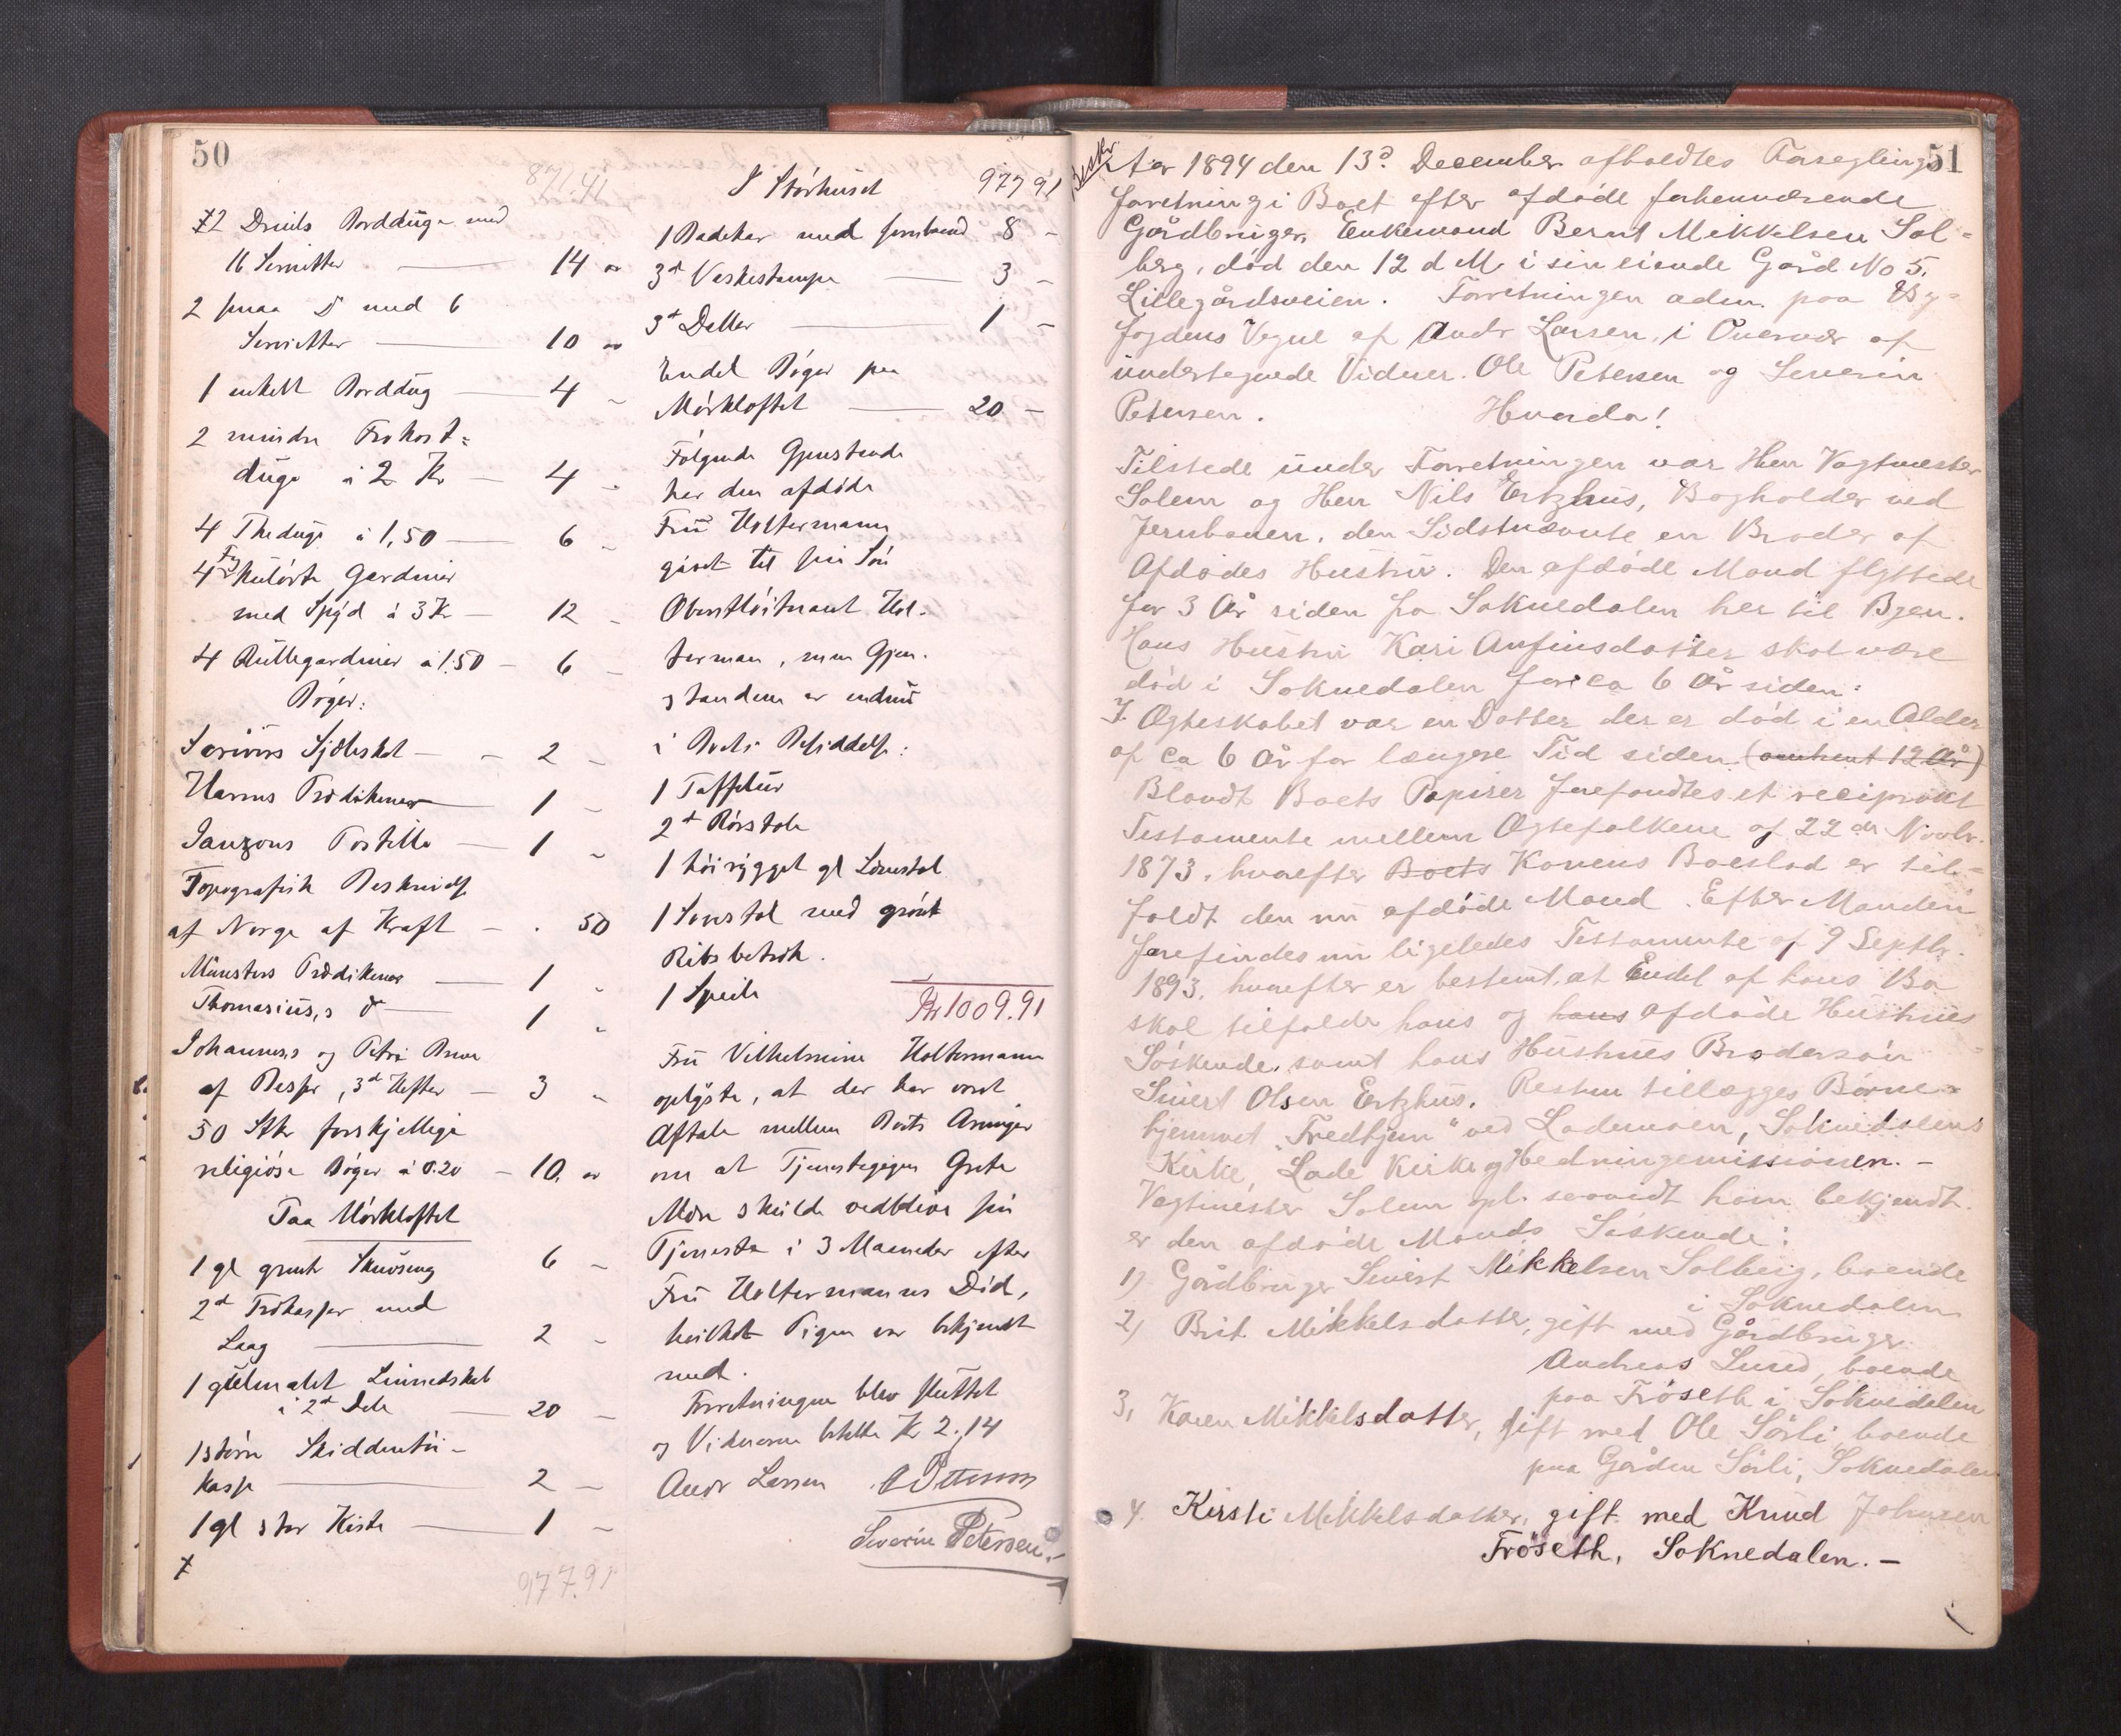 50
871.41
2 Dreils Borddüge med
16 Servietter — 14 "
2 smaa Do med 6
Servietter — 10 "
1 enkelt Borddüg — 4 "
2 mindre Frokost=
düge à 2 Kr — 4 "
4 Thedüge à 1,50 — 6 "
4 Fag kulörte Gardiner
med Spyd à 3 Kr — 12 "
4 Rullegardiner à 1.50 — 6 "
Bøger:
Scrivers Sjæleskat — 2 "
Harms Prædikener — 1 "
Postille — 1 "
Topografisk Beskrivelse
af Norge af Kraft — . 50
Münsters Prædikener — 1 "
Thomasius,s do — 1 "
Johannes's og Petri Breve
af Besser, 3d Hefter — 3 "
50 Stkr forskjellige
religiöse Bøger à 0.20 — 10. "
Paa Mörkloftet
1 gl grønt 6 "
2d med
Laag — 2 "
1 gülmalet Linnedskab
i 2d Dele — 20 "
1 större Skiddentöi-
kasse — 2 "
1 gl stor Kiste — 1 "
977.91
I Störhuset 977 91
1 Badekar med Jernbaand 8 -
3d Vaskestampe — 3 -
3d Dallar — 1 -
Endel Böger paa
Mörkloftet — 20 -
Følgende Gjenstande
har den afdöde
Frü Holtermann
givet til sin Sön
Oberstlöitnant Hol-
terman, som Gjen-
standene er endnü
i Boets Besiddelse:
1 Taffelur
2d Rörstole
1 höirygget gl Lænestol
1 Lænestol med grönt
Ribsbetræk.
1 Speil
Kr 1009.91
Frü Vilhelmine Holtermann
oplyste, at der har været
Aftale mellem Boets Arvinger
om at Tjenestepigen Grete
Moen skülde vedblive sin
Tjeneste i 3 Maaneder efter
Frü Holtermanns Död,
hvilket Pigen var bekjendt
med.
Forretningen blev slüttet
og Vidnerne betalte Kr 2,14
Andr Larsen O Petersen
Severin Petersen.-
51
Beskr
Aar 1894 den 13d December afholdtes Forseglings
forretning i Boet efter afdöde forhenværende
Gårdbruger, Enkemand Bernt Mikkelsen Sol=
berg, död den 12 d M. i sin eiende Gård No 5.
Lillegårdsveien. Forretningen adm. paa By=
fogdens Vegne af Andr Larsen, i Overvær af
undertegnede Vidner. Ole Petersen og Severin
Petersen. Hvorda!
Tilstede ünder Forretningen var Herr Vagtmester
Solem og Herr Nils Ertzhüs, Bogholder ved
Jernbanen, den Sidstnævnte en Broder af
Afdödes Hüstrü. Den afdöde Mand flyttede
for 3 År siden fra Soknedalen her til Byen.
Hans Hüstrü Kari Anfinsdatter skal være
död i Soknedalen for ca 6 År siden:
I Ægteskabet var en Datter der er död i en Alder
af ca 6 År for længere Tid siden. (omtrent 12 År)
Blandt Boets Papirer forefandtes et reciprokt
Testamente mellem Ægtefolkene af 22de Novbr.
1873, hvorefter Boets Konens Boeslod er til-
faldt den nü afdöde Mand. Efter Manden
forefindes nü ligeledes Testamente af 9 Septbr.
1893, hvorefter er bestemt, at Endel af hans Bo
skal tilfalde hans og hans afdöde Hüstrües
Söskende, samt hans Hüstrües Brodersön
Sivert Olsen Ertzhüs. Resten tillægges Börne-
hjemmet "Fredhjem" ved Lademoen, Soknedalens
Kirke, Lade Kirke og Hedningemissionen.-
Vagtmester Solem opl. saavidt ham bekjendt.
er den afdöde Mands Söskende:
1) Gårdbruger Sivert Mikkelsen Solberg, boende
i Soknedalen
2) Brit. Mikkelsdatter, gift med Gårdbruger
Andreas Lund, boende
paa Fröseth i Soknedalen
3, Karen Mikkelsdatter, gift med Ole Sörli, boende
paa Gården Sörli, Soknedalen
4. Kirsti Mikkelsdatter, gift med Knud Johnsen
Fröseth, Soknedalen.-